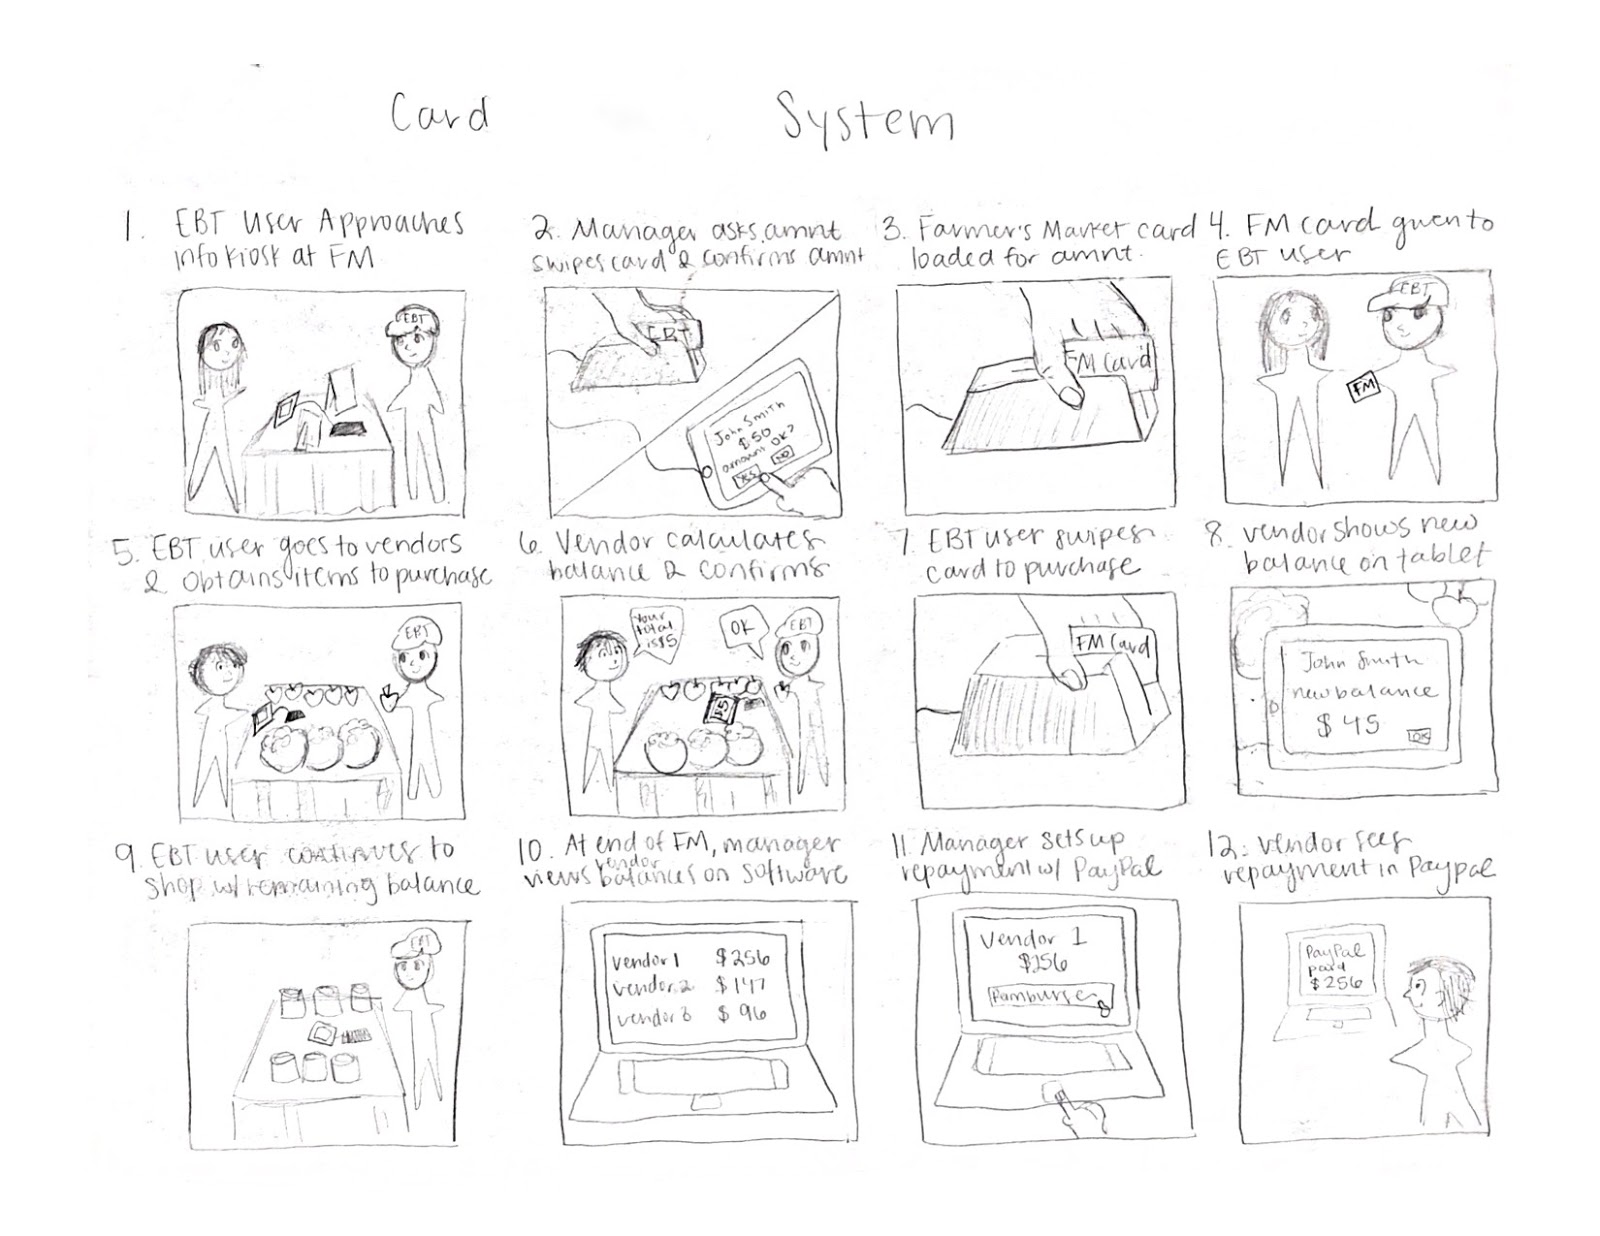 Card System
1. EBT User Approaches
info kiosk at FM
EBT
2. Manager asks amnt
swipes card & confirms amnt
EBT
John Smith
$50
amount OK?
YES NO
3. Farmer's Market card
loaded for amnt.
FM Card
4. FM card given to
EBT user
EBT
FM
5. EBT user goes to vendors
& obtains items to purchase
EBT
6. Vendor calculates
balance & confirms
Your
total
is $5
OK
EBT
$5
7. EBT user swipes
card to purchase
FM Card
8. vendor shows new
balance on tablet
John Smith
new balance
$45
OK
9. EBT user continues to
shop w/ remaining balance
EBT
10. At end of FM, manager
views vendor balances on software
vendor 1 $256
vendor 2 $147
vendor 3 $96
11. Manager sets up
repayment w/ PayPal
Vendor 1
$256
12. vendor sees
repayment in Paypal
PayPal
paid
$256